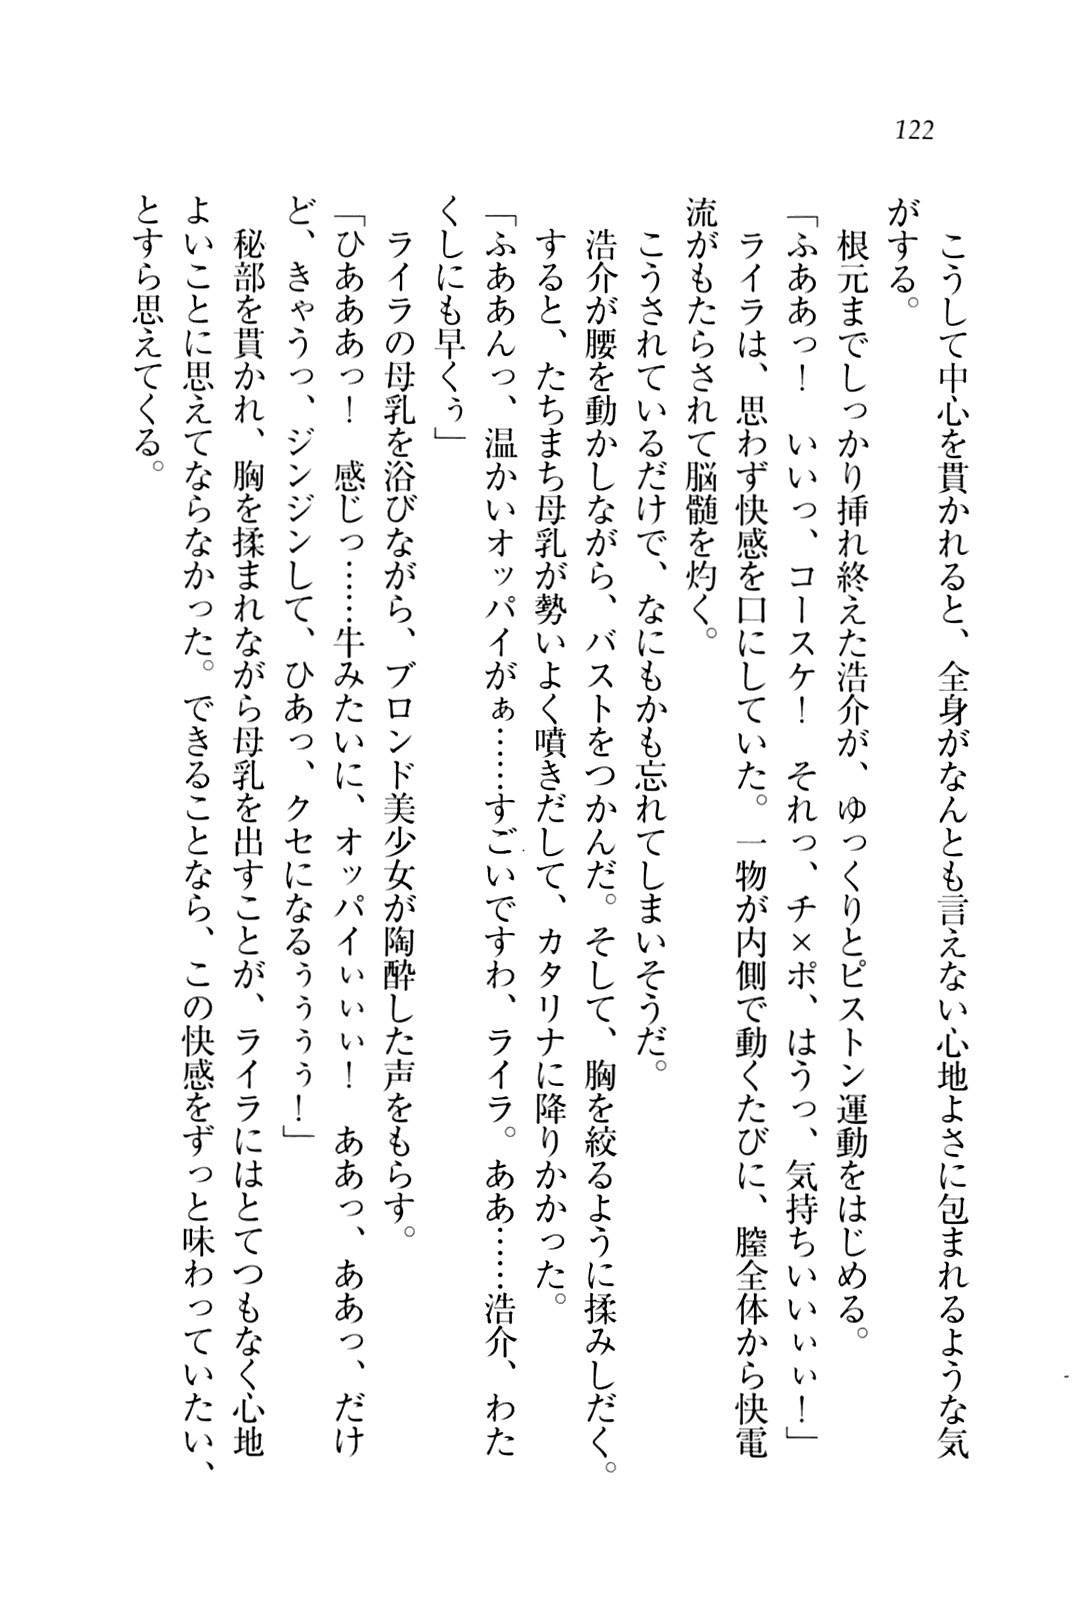 122
こうして中心を貫かれると、全身がなんとも言えない心地よさに包まれるような気
がする。
根元までしっかり挿れ終えた浩介が、ゆっくりとピストン運動をはじめる。
「ふああっ！　いいっ、コースケ！　それっ、チ×ポ、はうっ、気持ちいいぃぃ！」
ライラは、思わず快感を口にしていた。一物が内側で動くたびに、膣全体から快電
流がもたらされて脳髄を灼く。
こうされているだけで、なにもかも忘れてしまいそうだ。
浩介が腰を動かしながら、バストをつかんだ。そして、胸を絞るように揉みしだく。
すると、たちまち母乳が勢いよく噴きだして、カタリナに降りかかった。
「ふああんっ、温かいオッパイがぁ……すごいですわ、ライラ。ああ……浩介、わた
くしにも早くぅ」
ライラの母乳を浴びながら、ブロンド美少女が陶酔した声をもらす。
「ひあああっ！　感じっ……牛みたいに、オッパイぃぃぃ！　ああっ、ああっ、だけ
ど、きゃうっ、ジンジンして、ひあっ、クセになるぅぅぅぅ！」
秘部を貫かれ、胸を揉まれながら母乳を出すことが、ライラにはとてつもなく心地
よいことに思えてならなかった。できることなら、この快感をずっと味わっていたい、
とすら思えてくる。